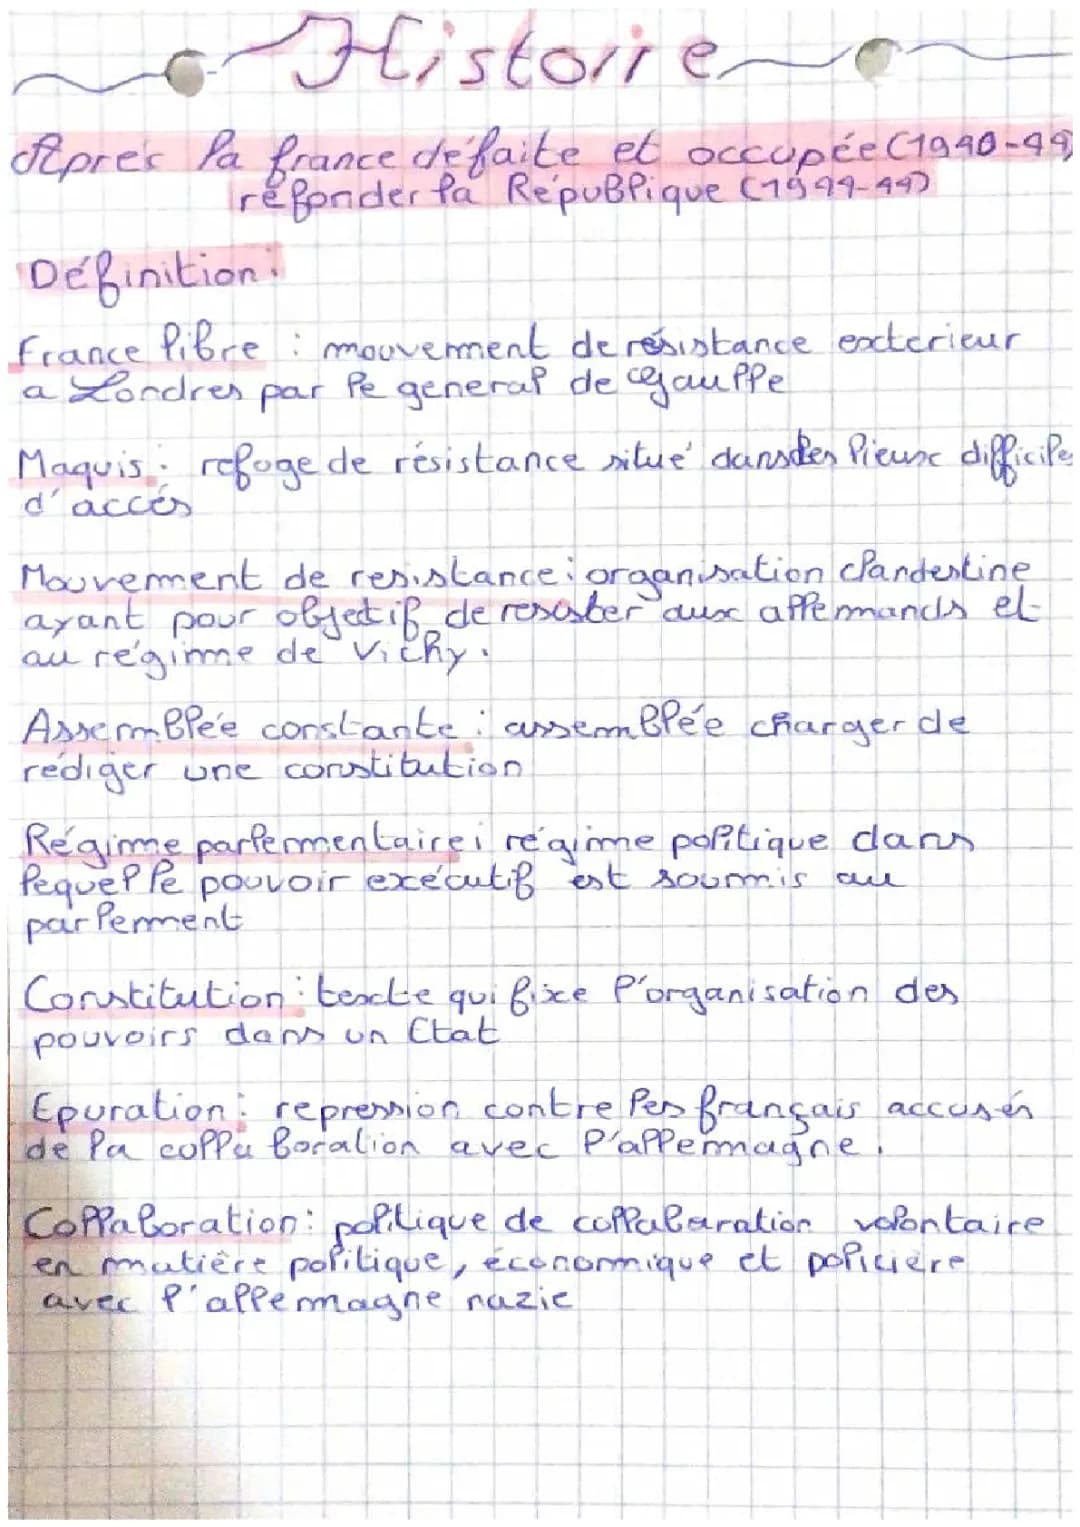 Histoire
Après la france défaite et occupée (1940-44)
réfonder la République (1944-44)
Définition :
France libre : mouvement de résistance exterieur
a Londres par le general de gaulle
Maquis : refuge de résistance situé dans des lieux difficile
d'accés
Mouvement de resistance : organisation clandestine
ayant pour objectif de resister aux allemands et
au régime de Vichy.
Assemblée constante : assemblée charger de
rédiger une constitution
Régime parlementaire : régime politique dans
lequel le pouvoir exécutif est soumis au
parlement
Constitution : texte qui fixe l'organisation des
pouvoirs dans un Etat
Epuration : repression contre les français accusés
de la collaboration avec l'allemagne.
Collaboration : politique de collabaration volontaire
en matière politique, économique et policière
avec l'allemagne nazie